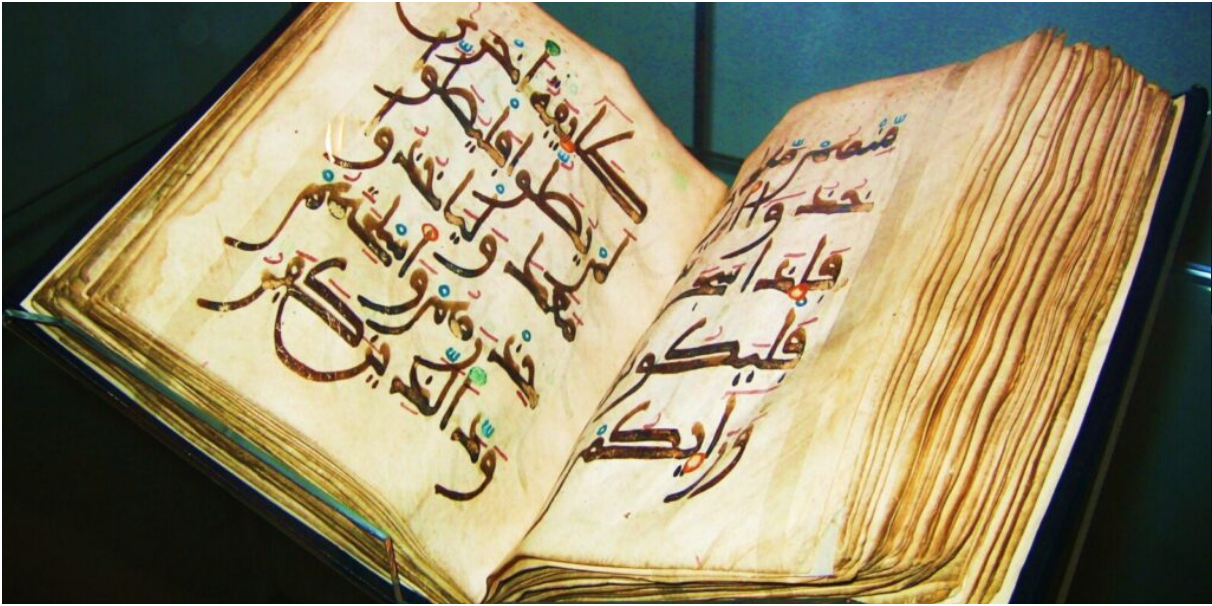 مِّنْهُم
خُذُوا
فَإِذَا سَجَدُ
فَلْيَكُو
وَرَايِكُمْ
طَايِفَةٌ اخْرَىٰ
لَمْ يُصَلُّوا فَلْيُصَلُّوا
مَعَكَ وَلْيَاخُذُوا
حِذْرَهُمْ وَاسْلِحَتَهُمْ
وَدَّ الَّذِينَ كَفَرُ